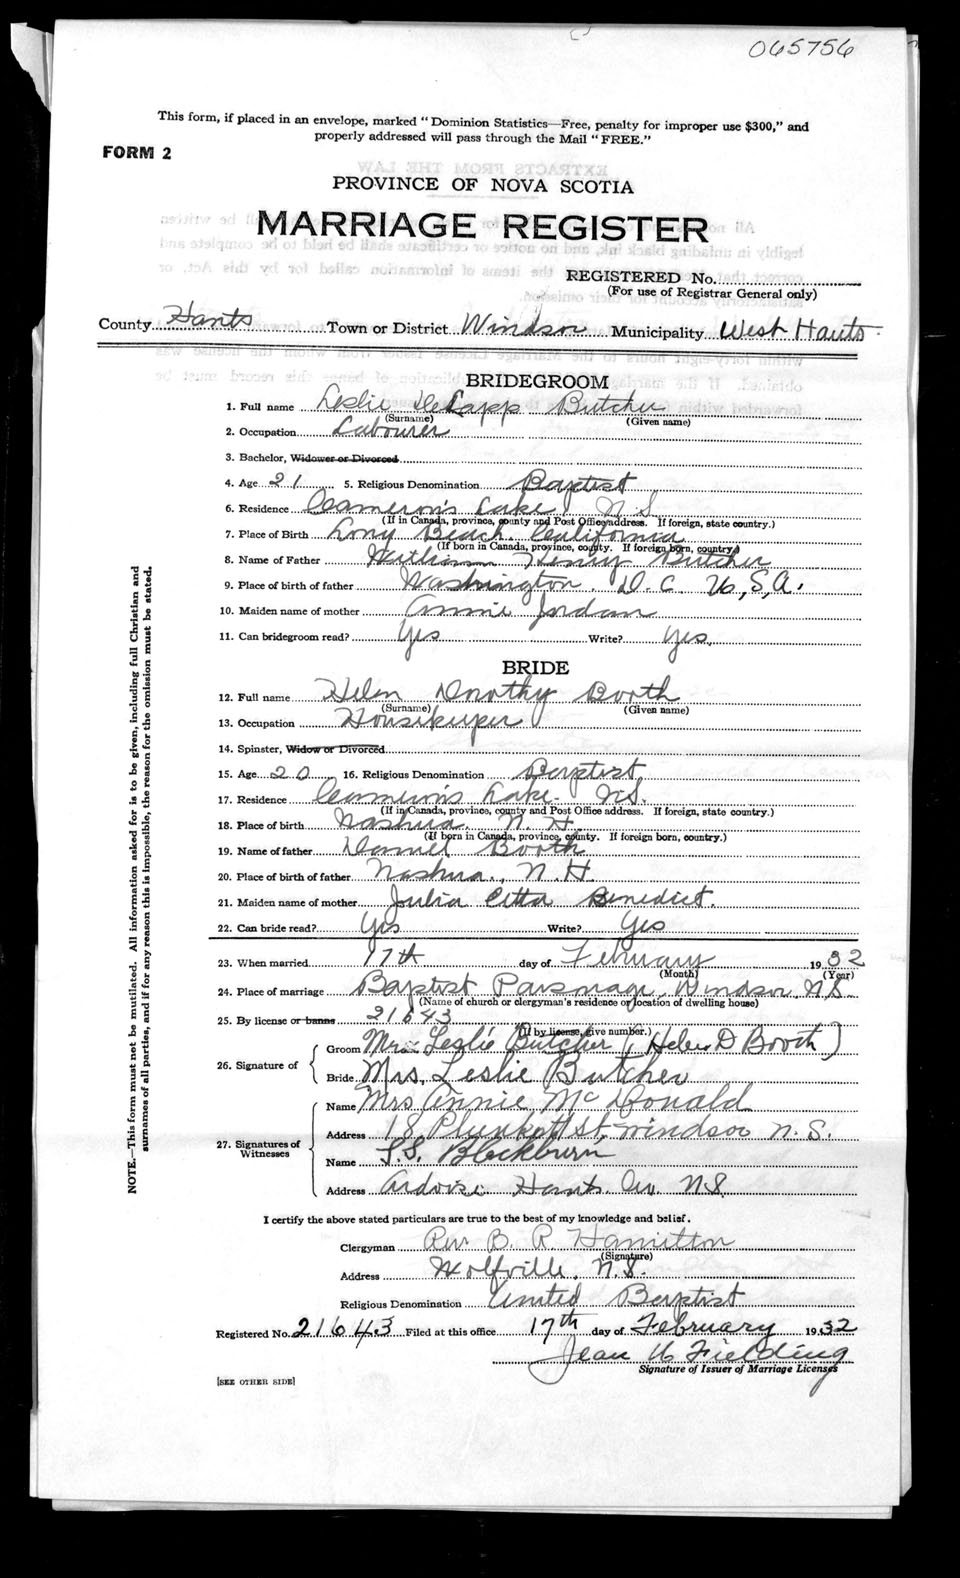 065756
This form, if placed in an envelope, marked "Dominion Statistics—Free, penalty for improper use $300," and
properly addressed will pass through the Mail "FREE."
FORM 2
PROVINCE OF NOVA SCOTIA
MARRIAGE REGISTER
REGISTERED No.
(For use of Registrar General only)
County Hants Town or District Windsor Municipality West Hants
BRIDEGROOM
1. Full name Leslie DeLapp Butcher
(Surname) (Given name)
2. Occupation Labourer
3. Bachelor, Widower or Divorced
4. Age 21 5. Religious Denomination Baptist
6. Residence Cameron's Lake, N.S.
(If in Canada, province, county and Post Office address. If foreign, state country.)
7. Place of Birth Long Beach, California
(If born in Canada, province, county. If foreign born, country)
8. Name of Father Henry Butcher
9. Place of birth of father Washington, D.C. U,S,A.
10. Maiden name of mother Annie Jordan
11. Can bridegroom read? Yes Write? Yes.
BRIDE
12. Full name Helen Dorothy Booth
(Surname) (Given name)
13. Occupation Housekeeper
14. Spinster, Widow or Divorced
15. Age 20 16. Religious Denomination Baptist
17. Residence Cameron's Lake N.S.
(If in Canada, province, county and Post Office address. If foreign, state country.)
18. Place of birth Nashua, N.H.
(If born in Canada, province, county. If foreign born, country.)
19. Name of father Daniel Booth
20. Place of birth of father Nashua, N.H.
21. Maiden name of mother Julia Etta Benedict.
22. Can bride read? Yes Write? Yes
23. When married 17th day of February 1932
(Month) (Year)
24. Place of marriage Baptist Parsonage, Windsor, N.S.
(Name of church or clergyman's residence or location of dwelling house)
25. By license or banns 21643
(If by license, give number.)
26. Signature of
Groom Mr. Leslie Butcher (Helen D Booth)
Bride Mrs. Leslie Butcher
27. Signatures of Witnesses
Name Mrs Annie McDonald
Address 18 Plunkett St, Windsor N.S.
Name Blackburn
Address Ardoise Hants Co. N.S.
I certify the above stated particulars are true to the best of my knowledge and belief.
Clergyman Rev B. R Hamilton
(Signature)
Address Wolfville, N.S.
Religious Denomination United Baptist
Registered No. 21643 Filed at this office 17th day of February 1932
Jean Fielding
Signature of Issuer of Marriage Licenses
[SEE OTHER SIDE]
NOTE.—This form must not be mutilated. All information asked for is to be given, including full Christian and
surnames of all parties, and if for any reason this is impossible, the reason for the omission must be stated.